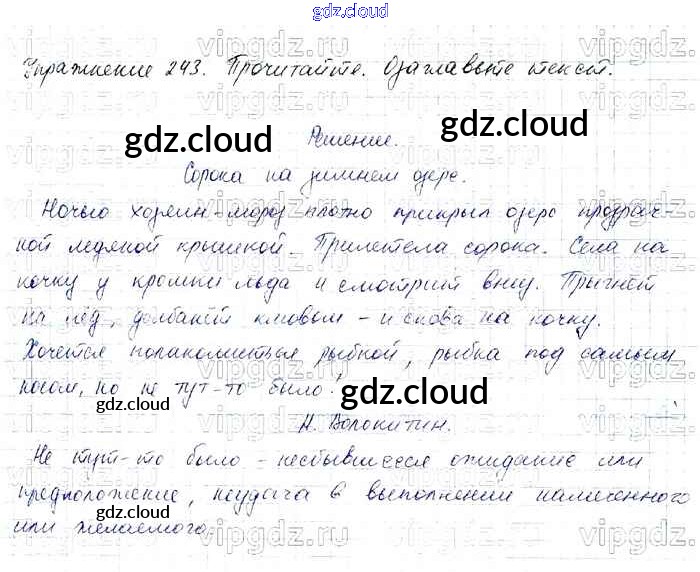 gdz.cloud
Упражнение 243. Прочитайте. Озаглавьте текст.
Решение.
Сорока на зимнем озере.
Ночью хозяин-мороз плотно прикрыл озеро прозрач-
ной ледяной крышкой. Прилетела сорока. Села на
кочку у кромки льда и смотрит вниз. Прыгнет
на лёд, долбанёт клювом - и снова на кочку.
Хочется полакомиться рыбкой, рыбка под самым
носом, но не тут-то было!
Н. Волокитин.
Не тут-то было - несбывшееся ожидание или
предположение, неудача в выполнении намеченного
или желаемого.